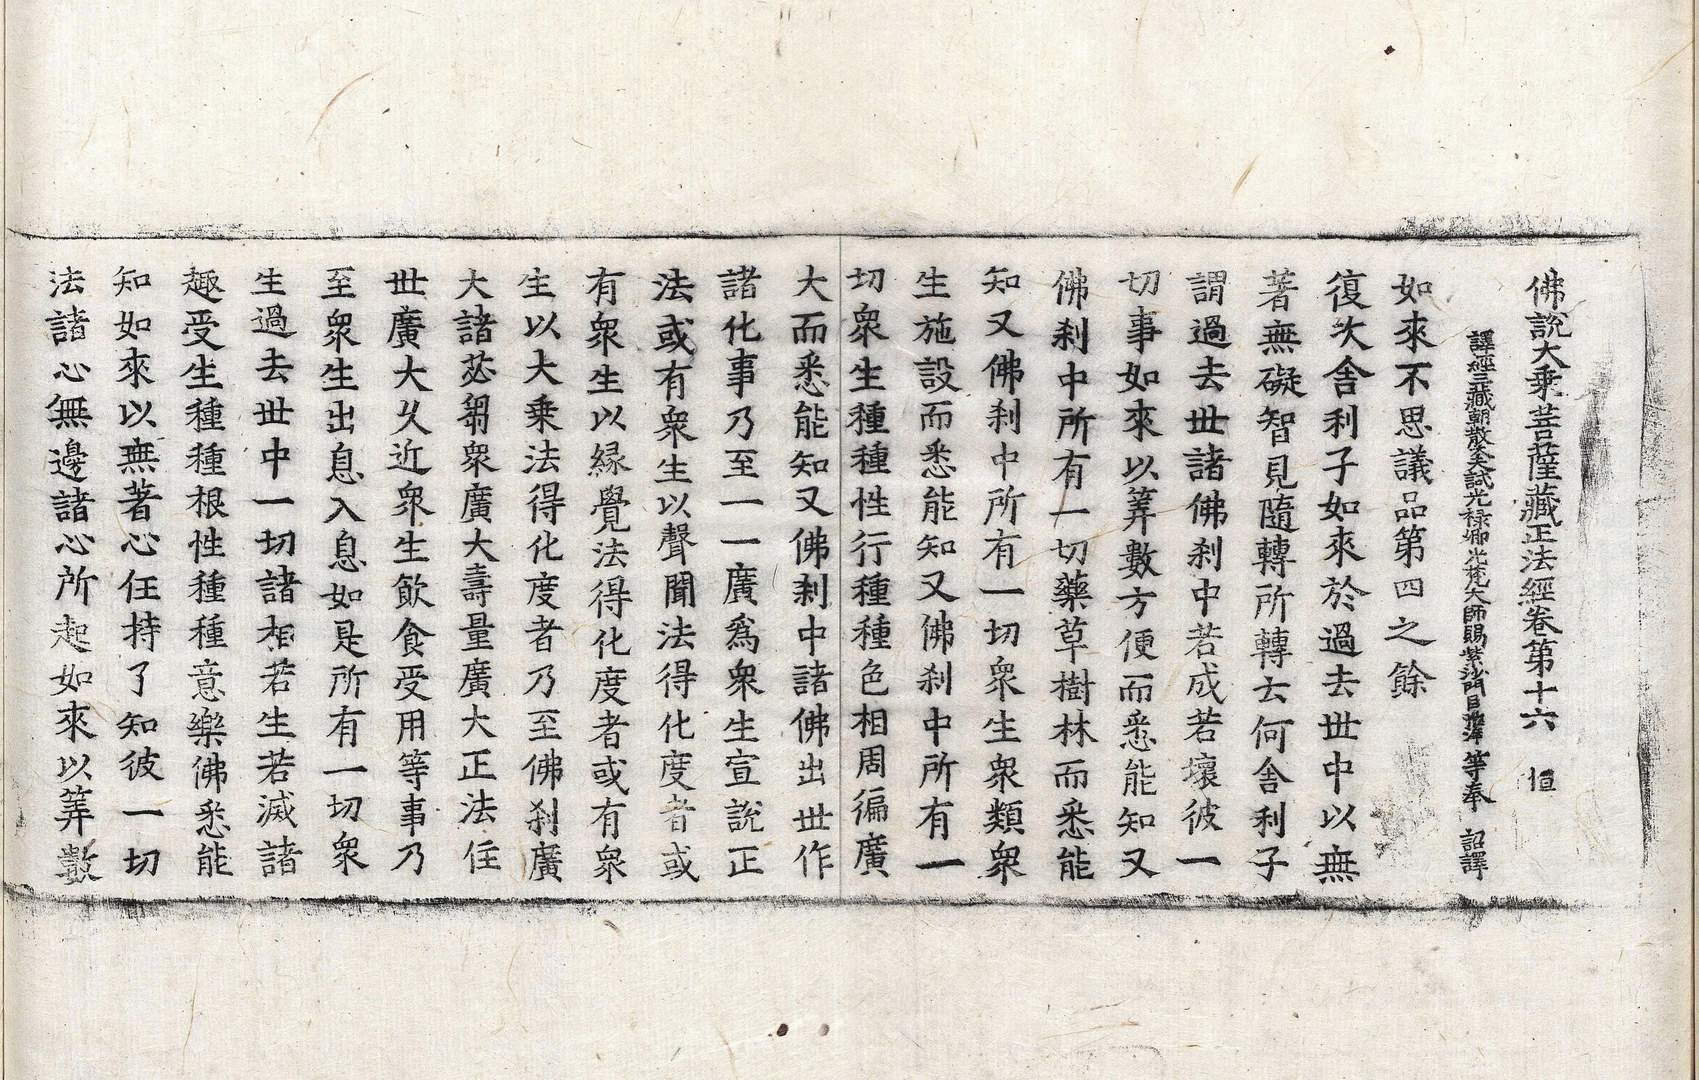 佛說大乘菩薩藏正法經卷第十六 恒
譯經三藏朝散大夫試光祿卿光梵大師賜紫沙門臣惟淨等奉 詔譯
如來不思議品第四之餘
復次舍利子如來於過去世中以無
著無礙智見隨轉所轉云何舍利子
謂過去世諸佛剎中若成若壞彼一
切事如來以筭數方便而悉能知又
佛剎中所有一切藥草樹林而悉能
知又佛剎中所有一切眾生眾類眾
生施設而悉能知又佛剎中所有一
切眾生種種性行種種色相周徧廣
大而悉能知又佛剎中諸佛出世作
諸化事乃至一一廣爲眾生宣說正
法或有眾生以聲聞法得化度者或
有眾生以緣覺法得化度者或有眾
生以大乘法得化度者乃至佛剎廣
大諸苾芻眾廣大壽量廣大正法住
世廣大久近眾生飲食受用等事乃
至眾生出息入息如是所有一切眾
生過去世中一切諸相若生若滅諸
趣受生種種根性種種意樂佛悉能
知如來以無著心任持了知彼一切
法諸心無邊諸心所起如來以筭數